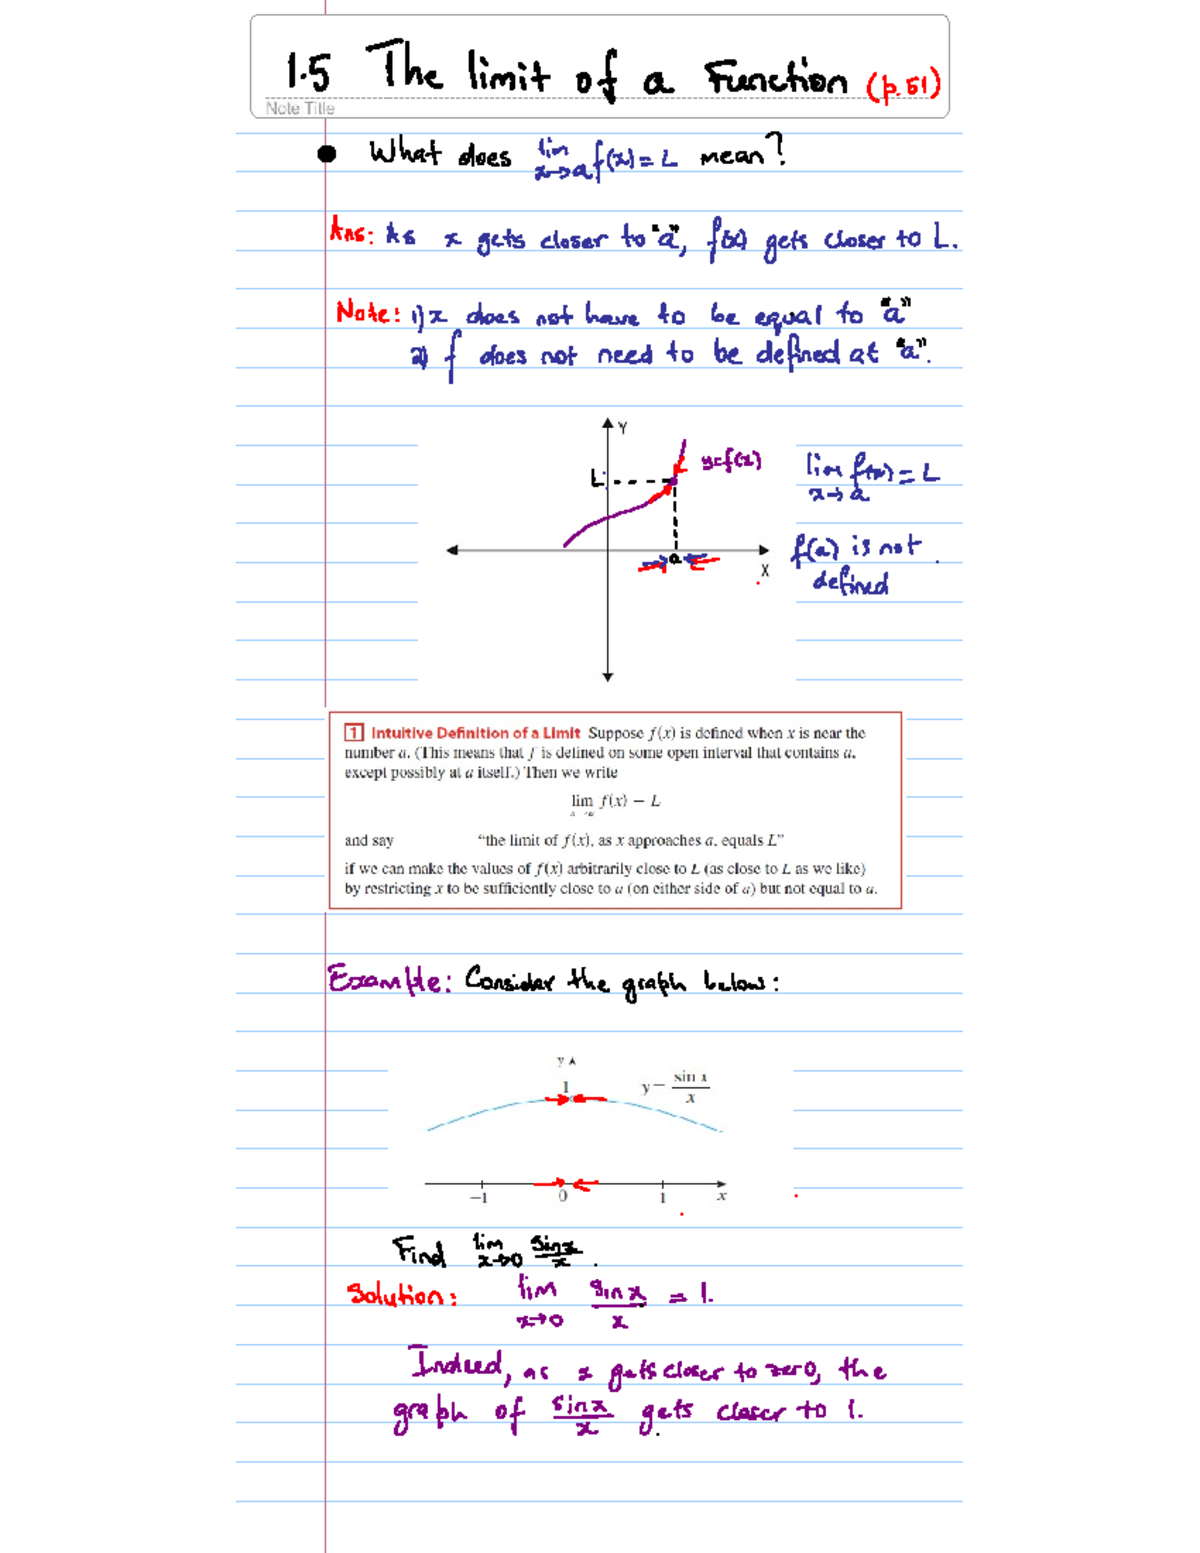 1.5 The limit of a Function (p.51)
Note Title
What does lim x→a f(x) = L mean?
Ans: As x gets closer to "a", f(x) gets closer to L.
Note: 1) x does not have to be equal to "a"
2) f does not need to be defined at "a".
Y
y=f(x)
L
lim x→a f(x) = L
a
X
f(a) is not
defined
1 Intuitive Definition of a Limit Suppose f(x) is defined when x is near the
number a. (This means that f is defined on some open interval that contains a,
except possibly at a itself.) Then we write
lim x→a f(x) = L
and say "the limit of f(x), as x approaches a, equals L"
if we can make the values of f(x) arbitrarily close to L (as close to L as we like)
by restricting x to be sufficiently close to a (on either side of a) but not equal to a.
Example: Consider the graph below:
y
1
y = sin x / x
−1 0 1 x
Find lim x→0 sinx/x.
Solution: lim x→0 sinx/x = 1.
Indeed, as x gets closer to zero, the
graph of sinx/x gets closer to 1.